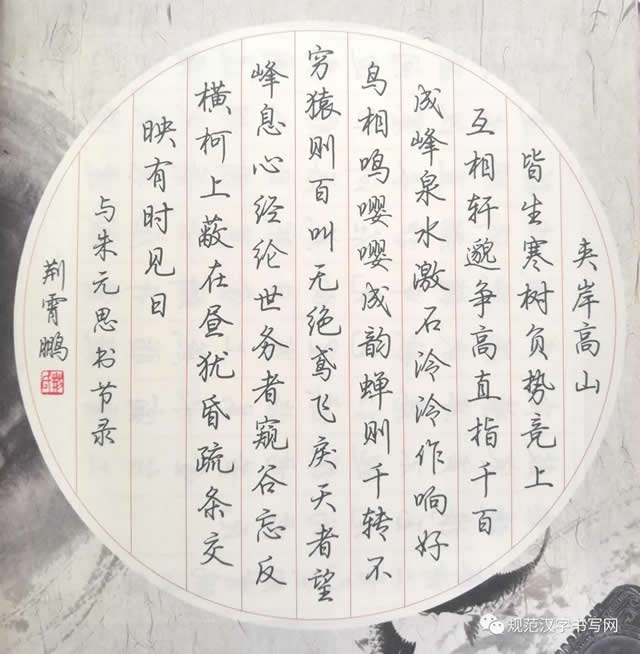 夹岸高山
皆生寒树负势竞上
互相轩邈争高直指千百
成峰泉水激石泠泠作响好
鸟相鸣嘤嘤成韵蝉则千转不
穷猿则百叫无绝鸢飞戾天者望
峰息心经纶世务者窥谷忘反
横柯上蔽在昼犹昏疏条交
映有时见日
与朱元思书节录
荆霄鹏
规范汉字书写网